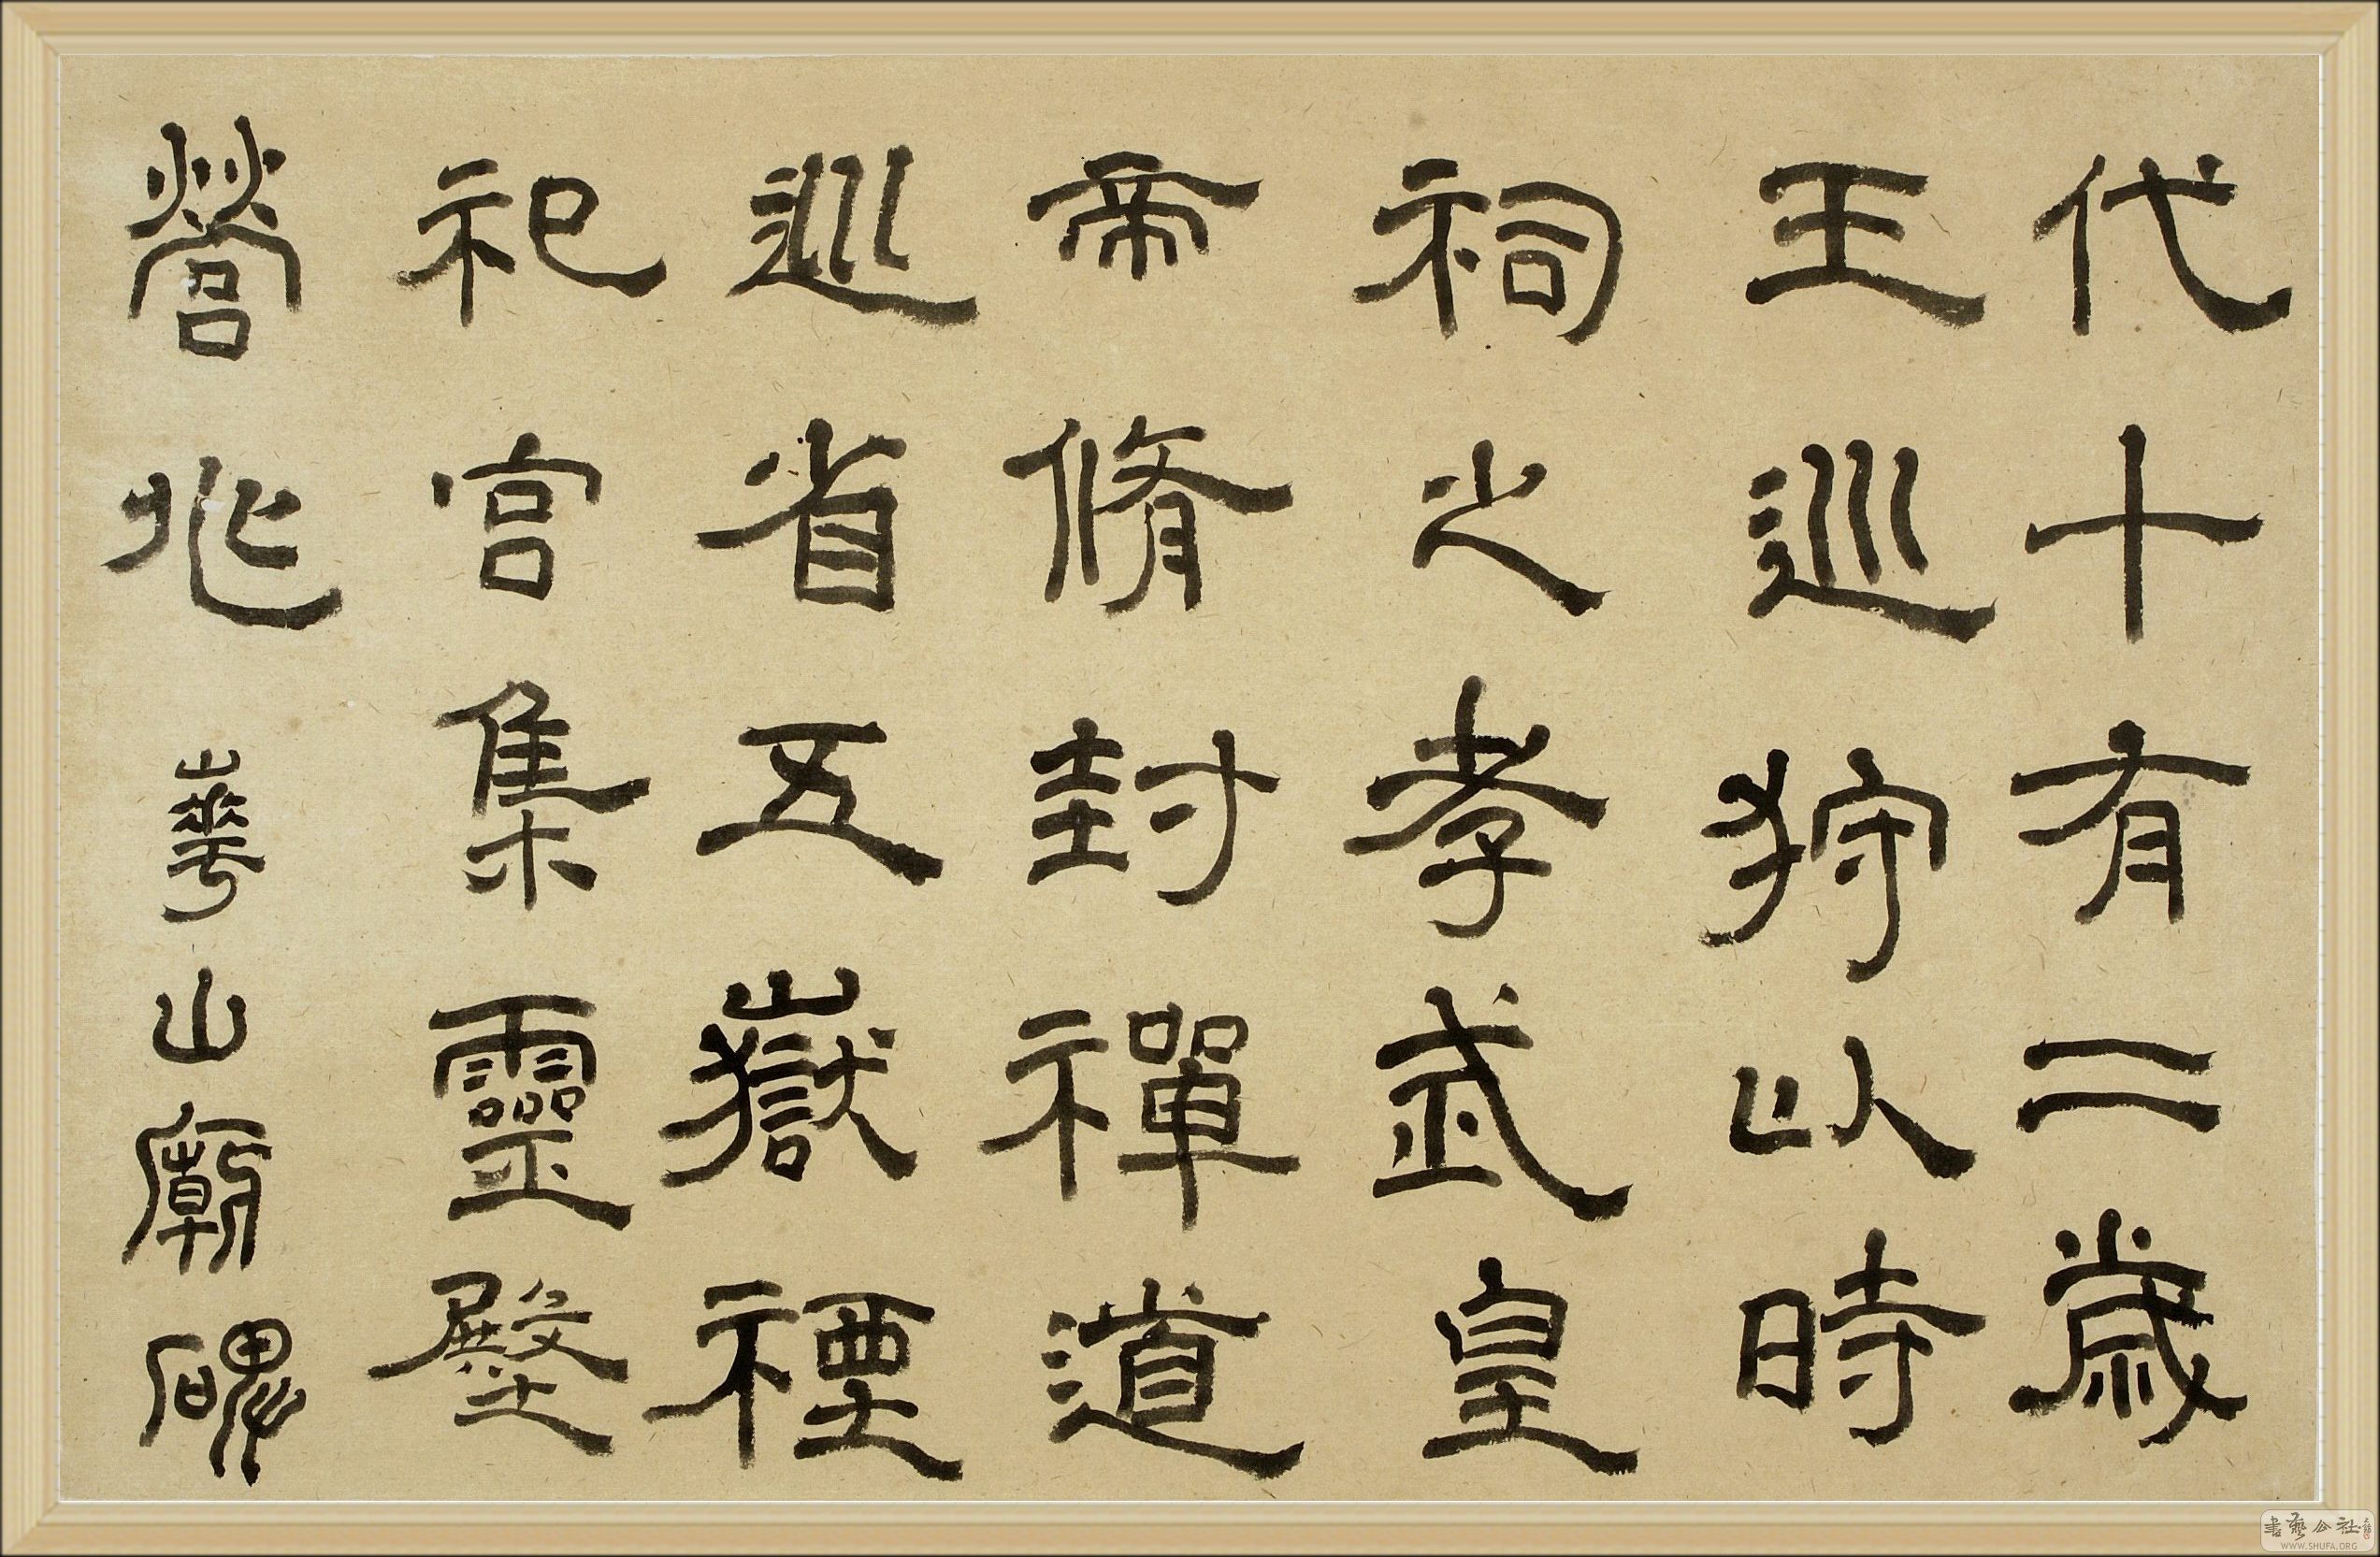 代十有二歲
王巡狩以時
祠之孝武皇
帝脩封禪道
巡省五嶽禋
祀宮集靈壂
營兆
華山廟碑
書藝公社
WWW.SHUFA.ORG